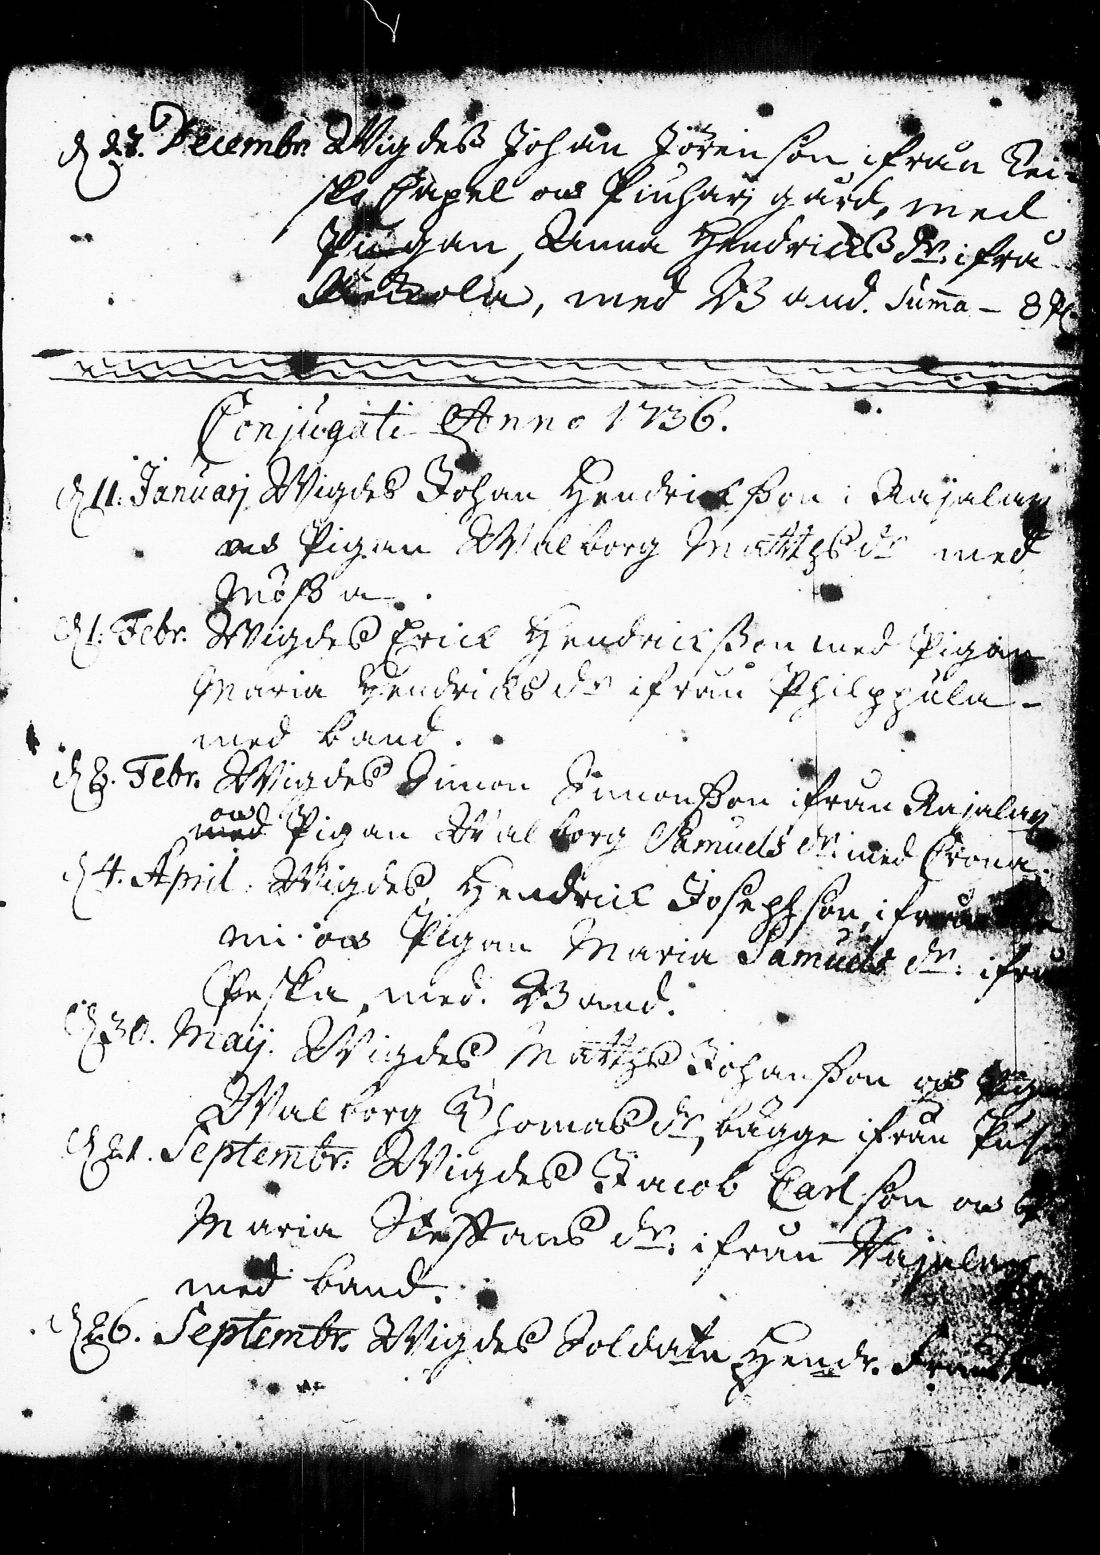 d. 27. Decembr. Wigdes Johan Jörenson ifrån Kei-
sko Capel och Piuharj gård, med
Pigan, Anna Hendricks dr. ifrå
med Band. Summa - 8 P.
Conjugati Anno 1736.
d. 11. Januarj Wigdes Johan Hendrichsson i Kajala
och Pigan Walborg Mattzdr med
Mössa.
d. 1. Febr. Wigdes Erick Hendricksson med Pigan
Maria Hendricksdr ifrån Philppula
med band.
d. 8. Febr. Wigdes Simon Simonsson ifrån Kajala
och
med Pigan Walborg Samuels dr. med Crona.
d. 4. April. Wigdes Hendrick Josephson, ifrån
mi. och Pigan Maria Samuels dr. ifrå
Peska, med. Band.
d. 30. Maij. Wigdes Mattz Johansson och Pigan
Walborg Thomasdr, bägge ifrån
d. 21. Septembr. Wigdes Jacob Carlson och
Maria Steffans dr. ifrån Kajala
med band.
d. 26. Septembr. Wigdes Soldaten Hendr.